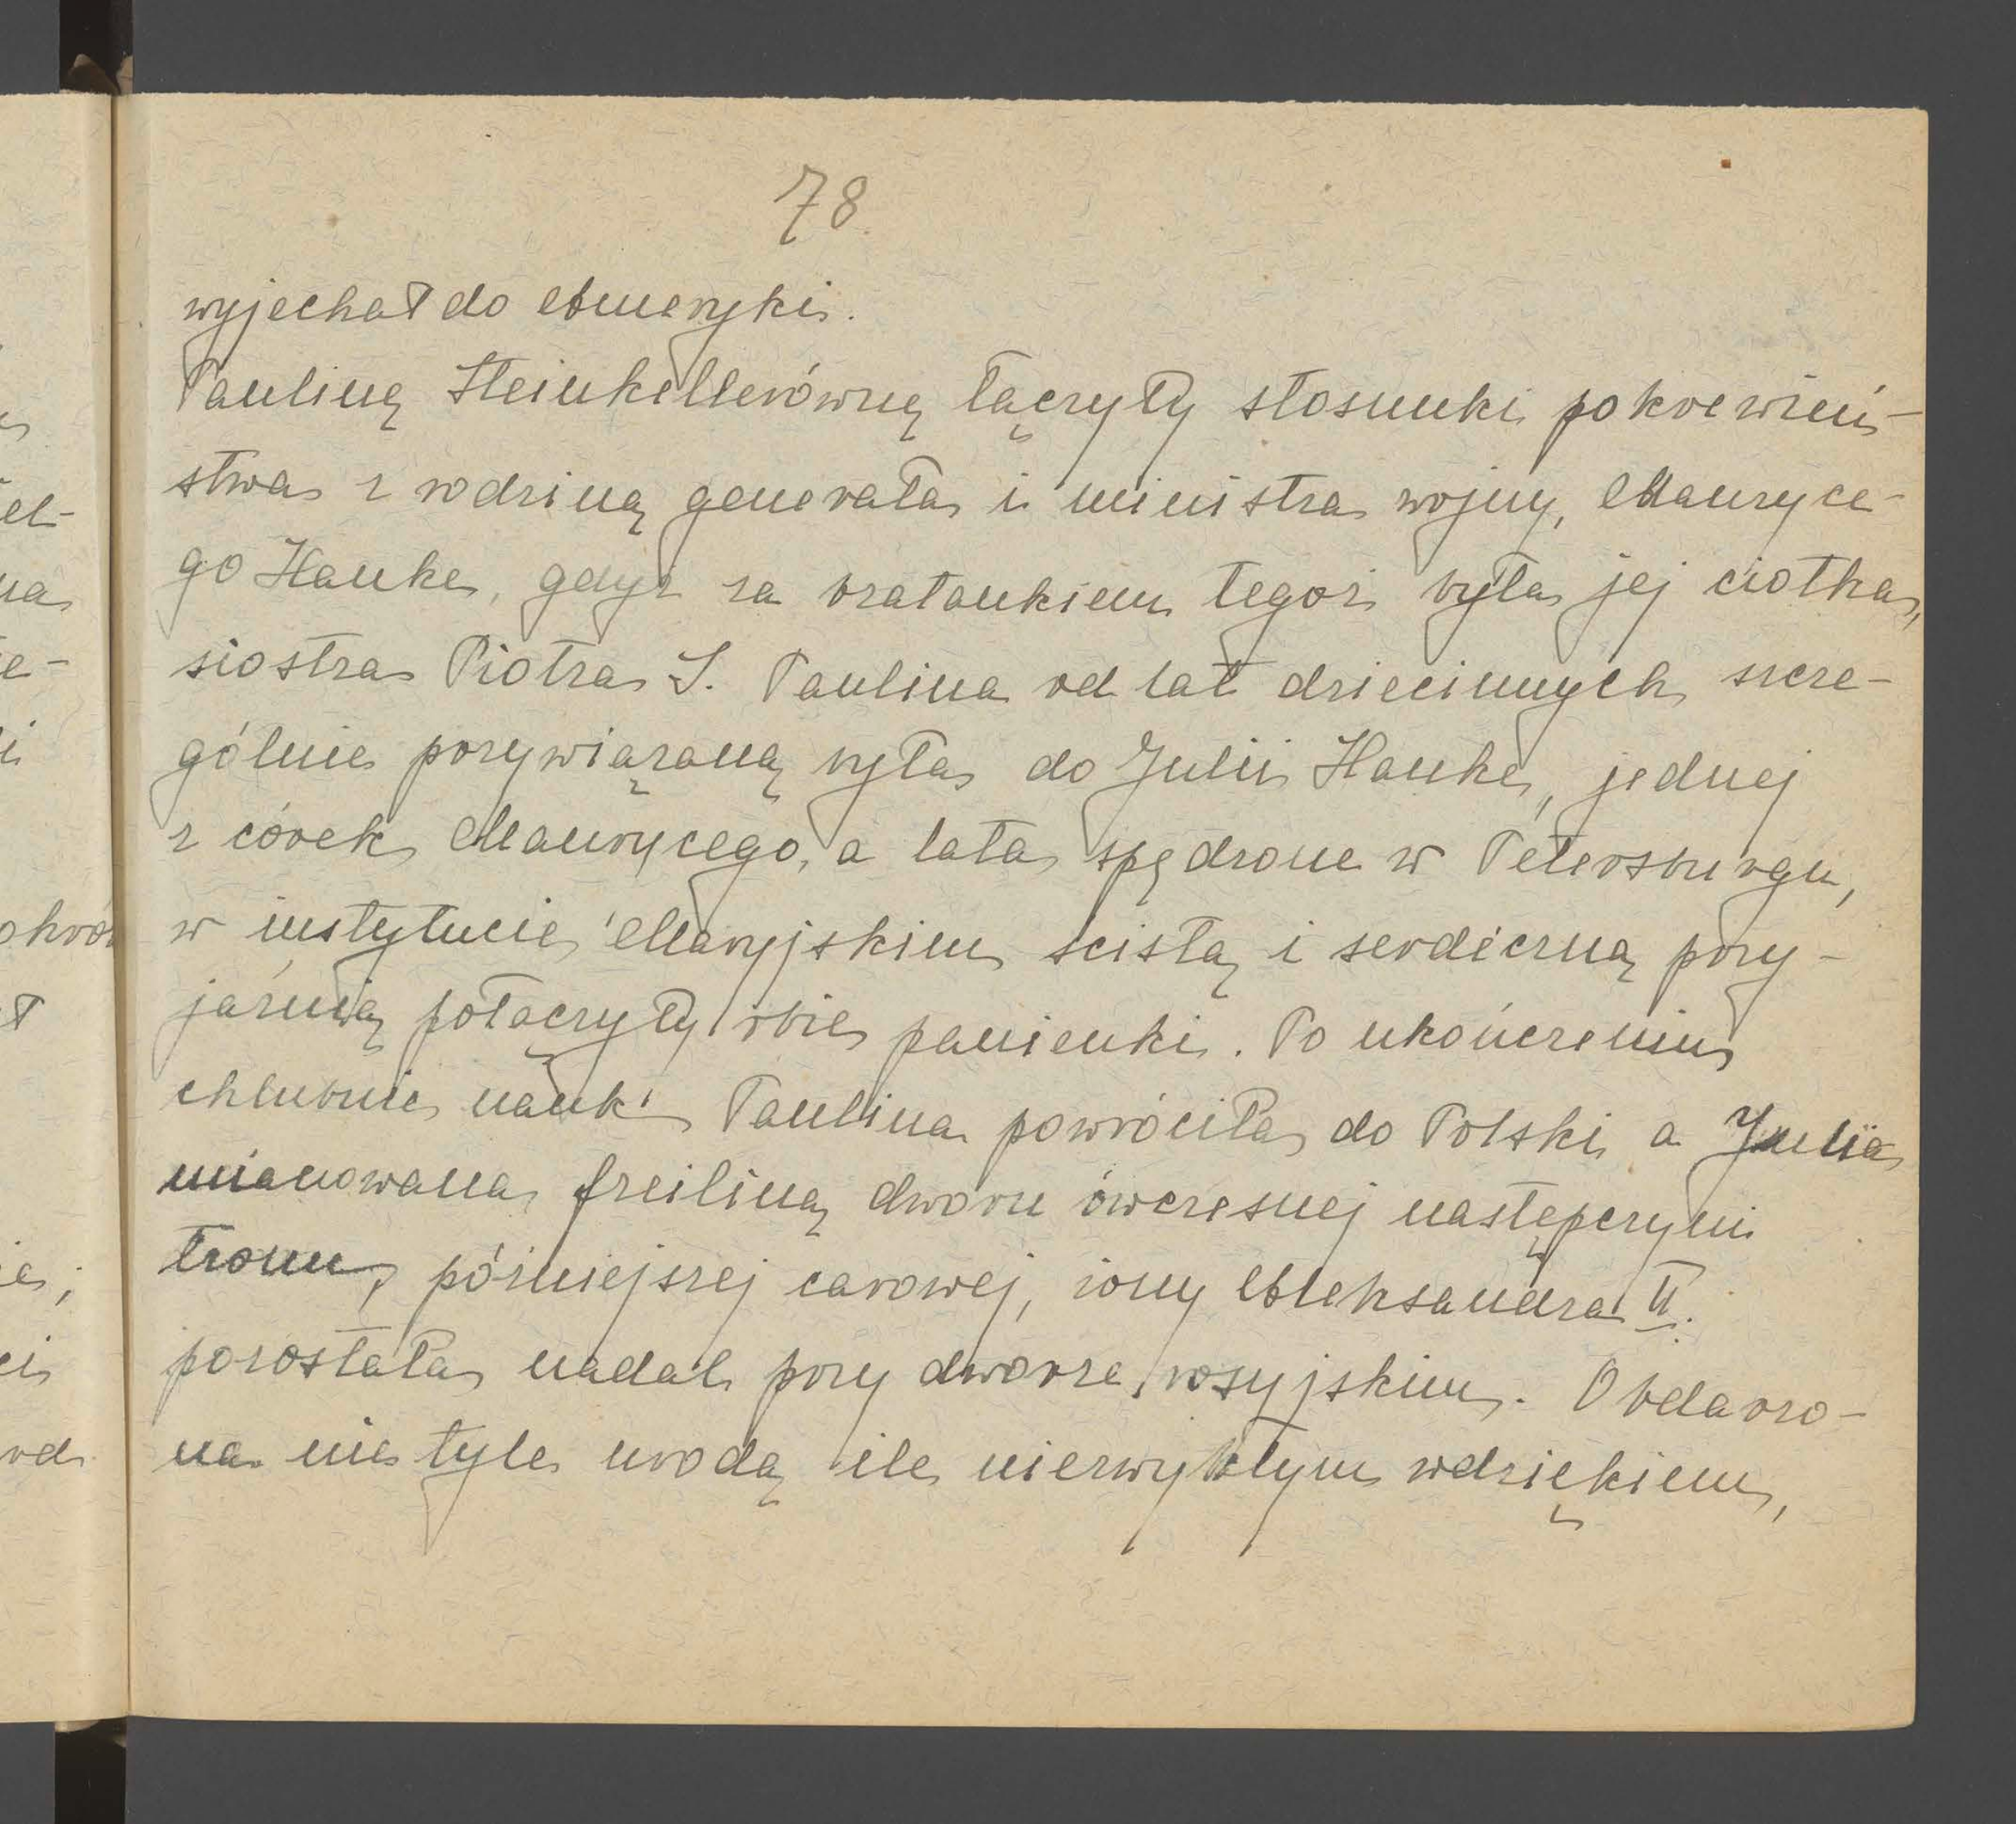 78
wyjechał do Ameryki.
Paulinę Steinkellerównę łączyły stosunki pokrewień-
stwa z rodziną generała i ministra wojny, Mauryce-
go Hauke, gdyż za bratankiem tegoż była jej ciotka,
siostra Piotra S. Paulina od lat dziecinnych szcze-
gólnie przywiązaną była do Julii Hauke, jednej
z córek Maurycego, a lata spędzone w Petersburgu,
w instytucie Maryjskim ścisłą i serdeczną przy-
jaźnią połączyły obie panienki. Po ukończeniu
chlubnie nauki Paulina powróciła do Polski a Julia
mianowana freiliną dworu ówczesnej następczyni
tronu, późniejszej carowej, żony Aleksandra II.
pozostała nadal przy dworze rosyjskim. Obdarzo-
na nie tyle urodą ile niezwykłym wdziękiem,
el-
na
e-
i
okró
ł
ie;
ci
od